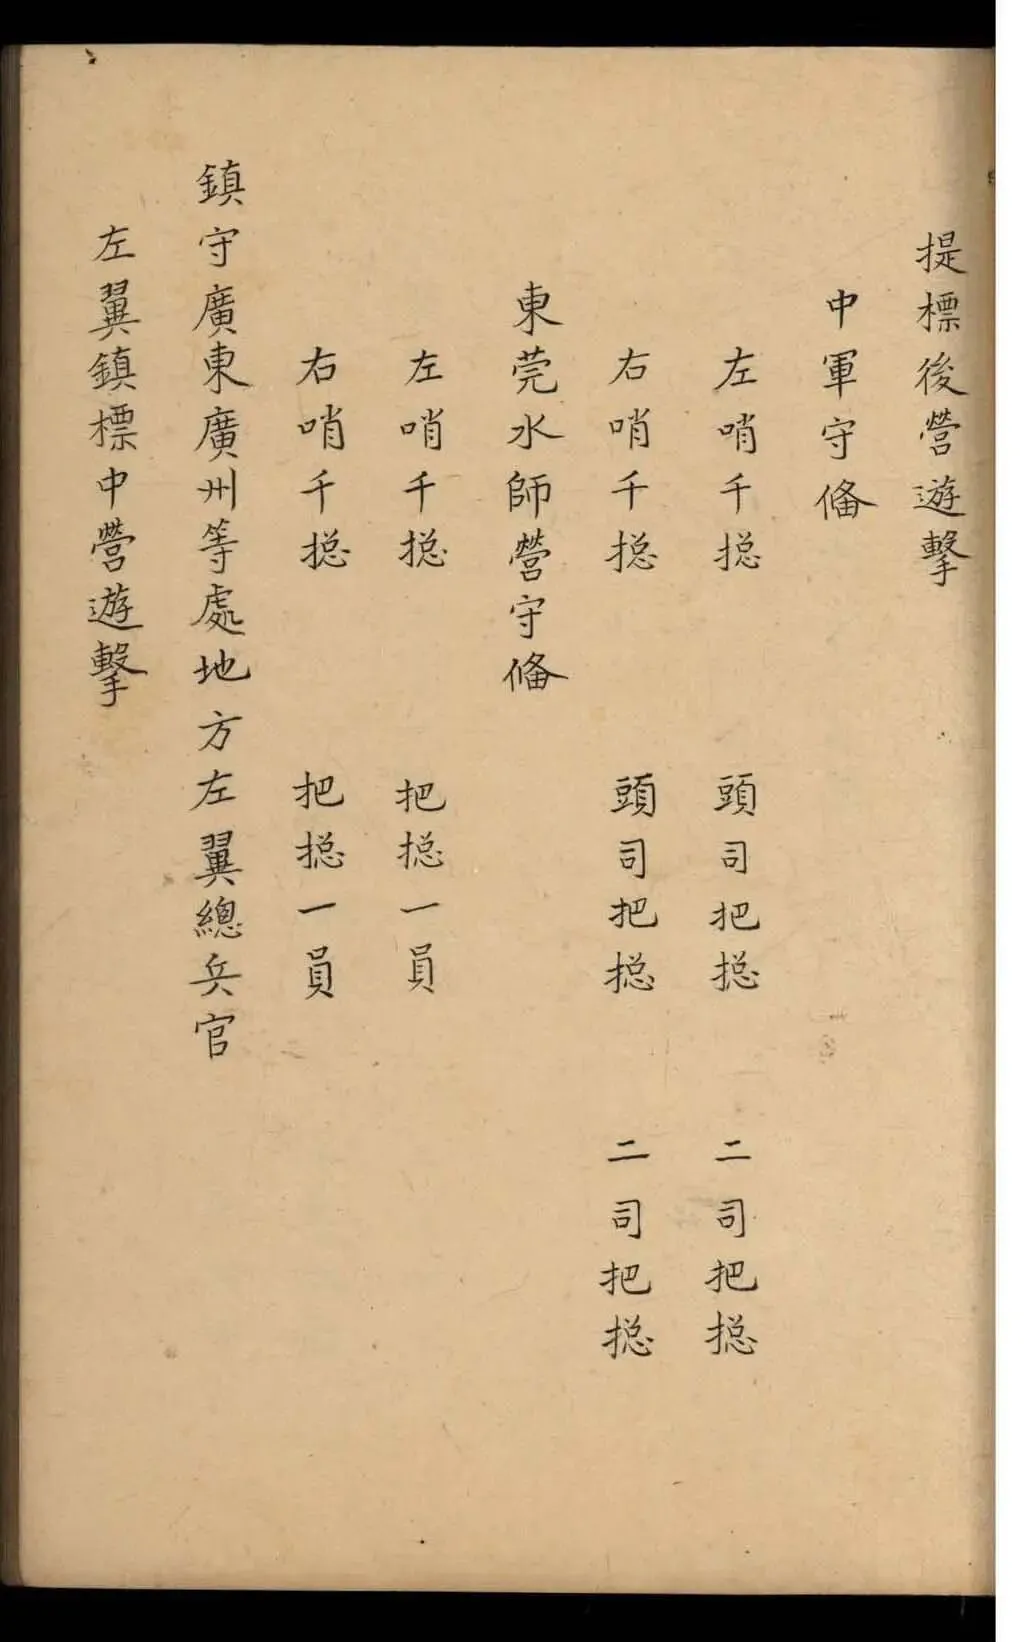 提標後營遊擊
中軍守俻
左哨千搃 頭司把搃 二司把搃
右哨千搃 頭司把搃 二司把搃
東莞水師營守俻
左哨千搃 把搃一員
右哨千搃 把搃一員
鎮守廣東廣州等處地方左翼總兵官
左翼鎮標中營遊擊